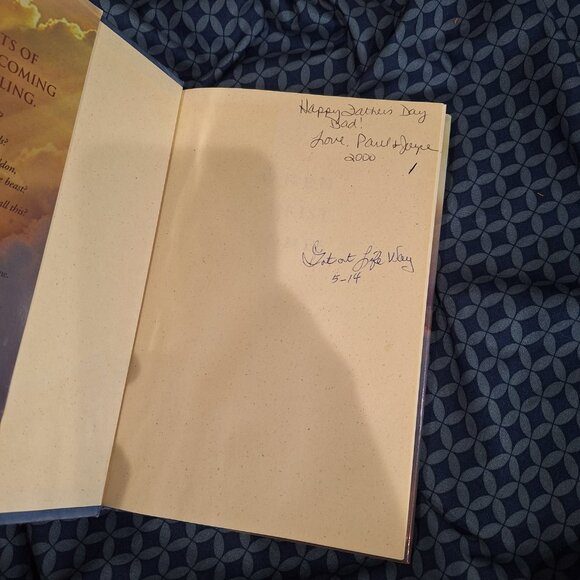 TS OF
COMING
LING.
?
h?
don,
beast?
all this?
ne.
Happy Fathers Day
Dad!
Love, Paul & Joyce
2000
Got at Life Way
5-14